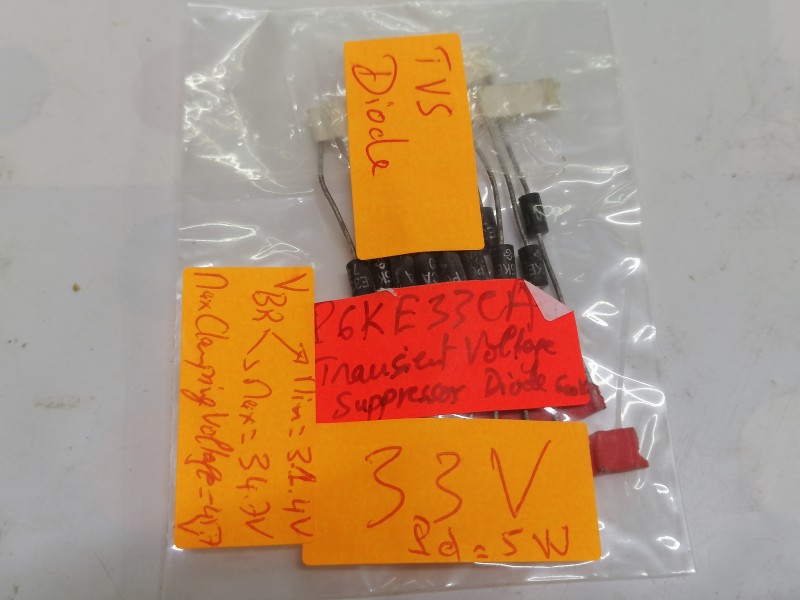 TVS
Diode
P6KE33CA
Transient Voltage
Suppressor Diode
33V
Pd = 5W
VBR Min = 31.4V
Max = 34.7V
Max Clamping Voltage = 45.7